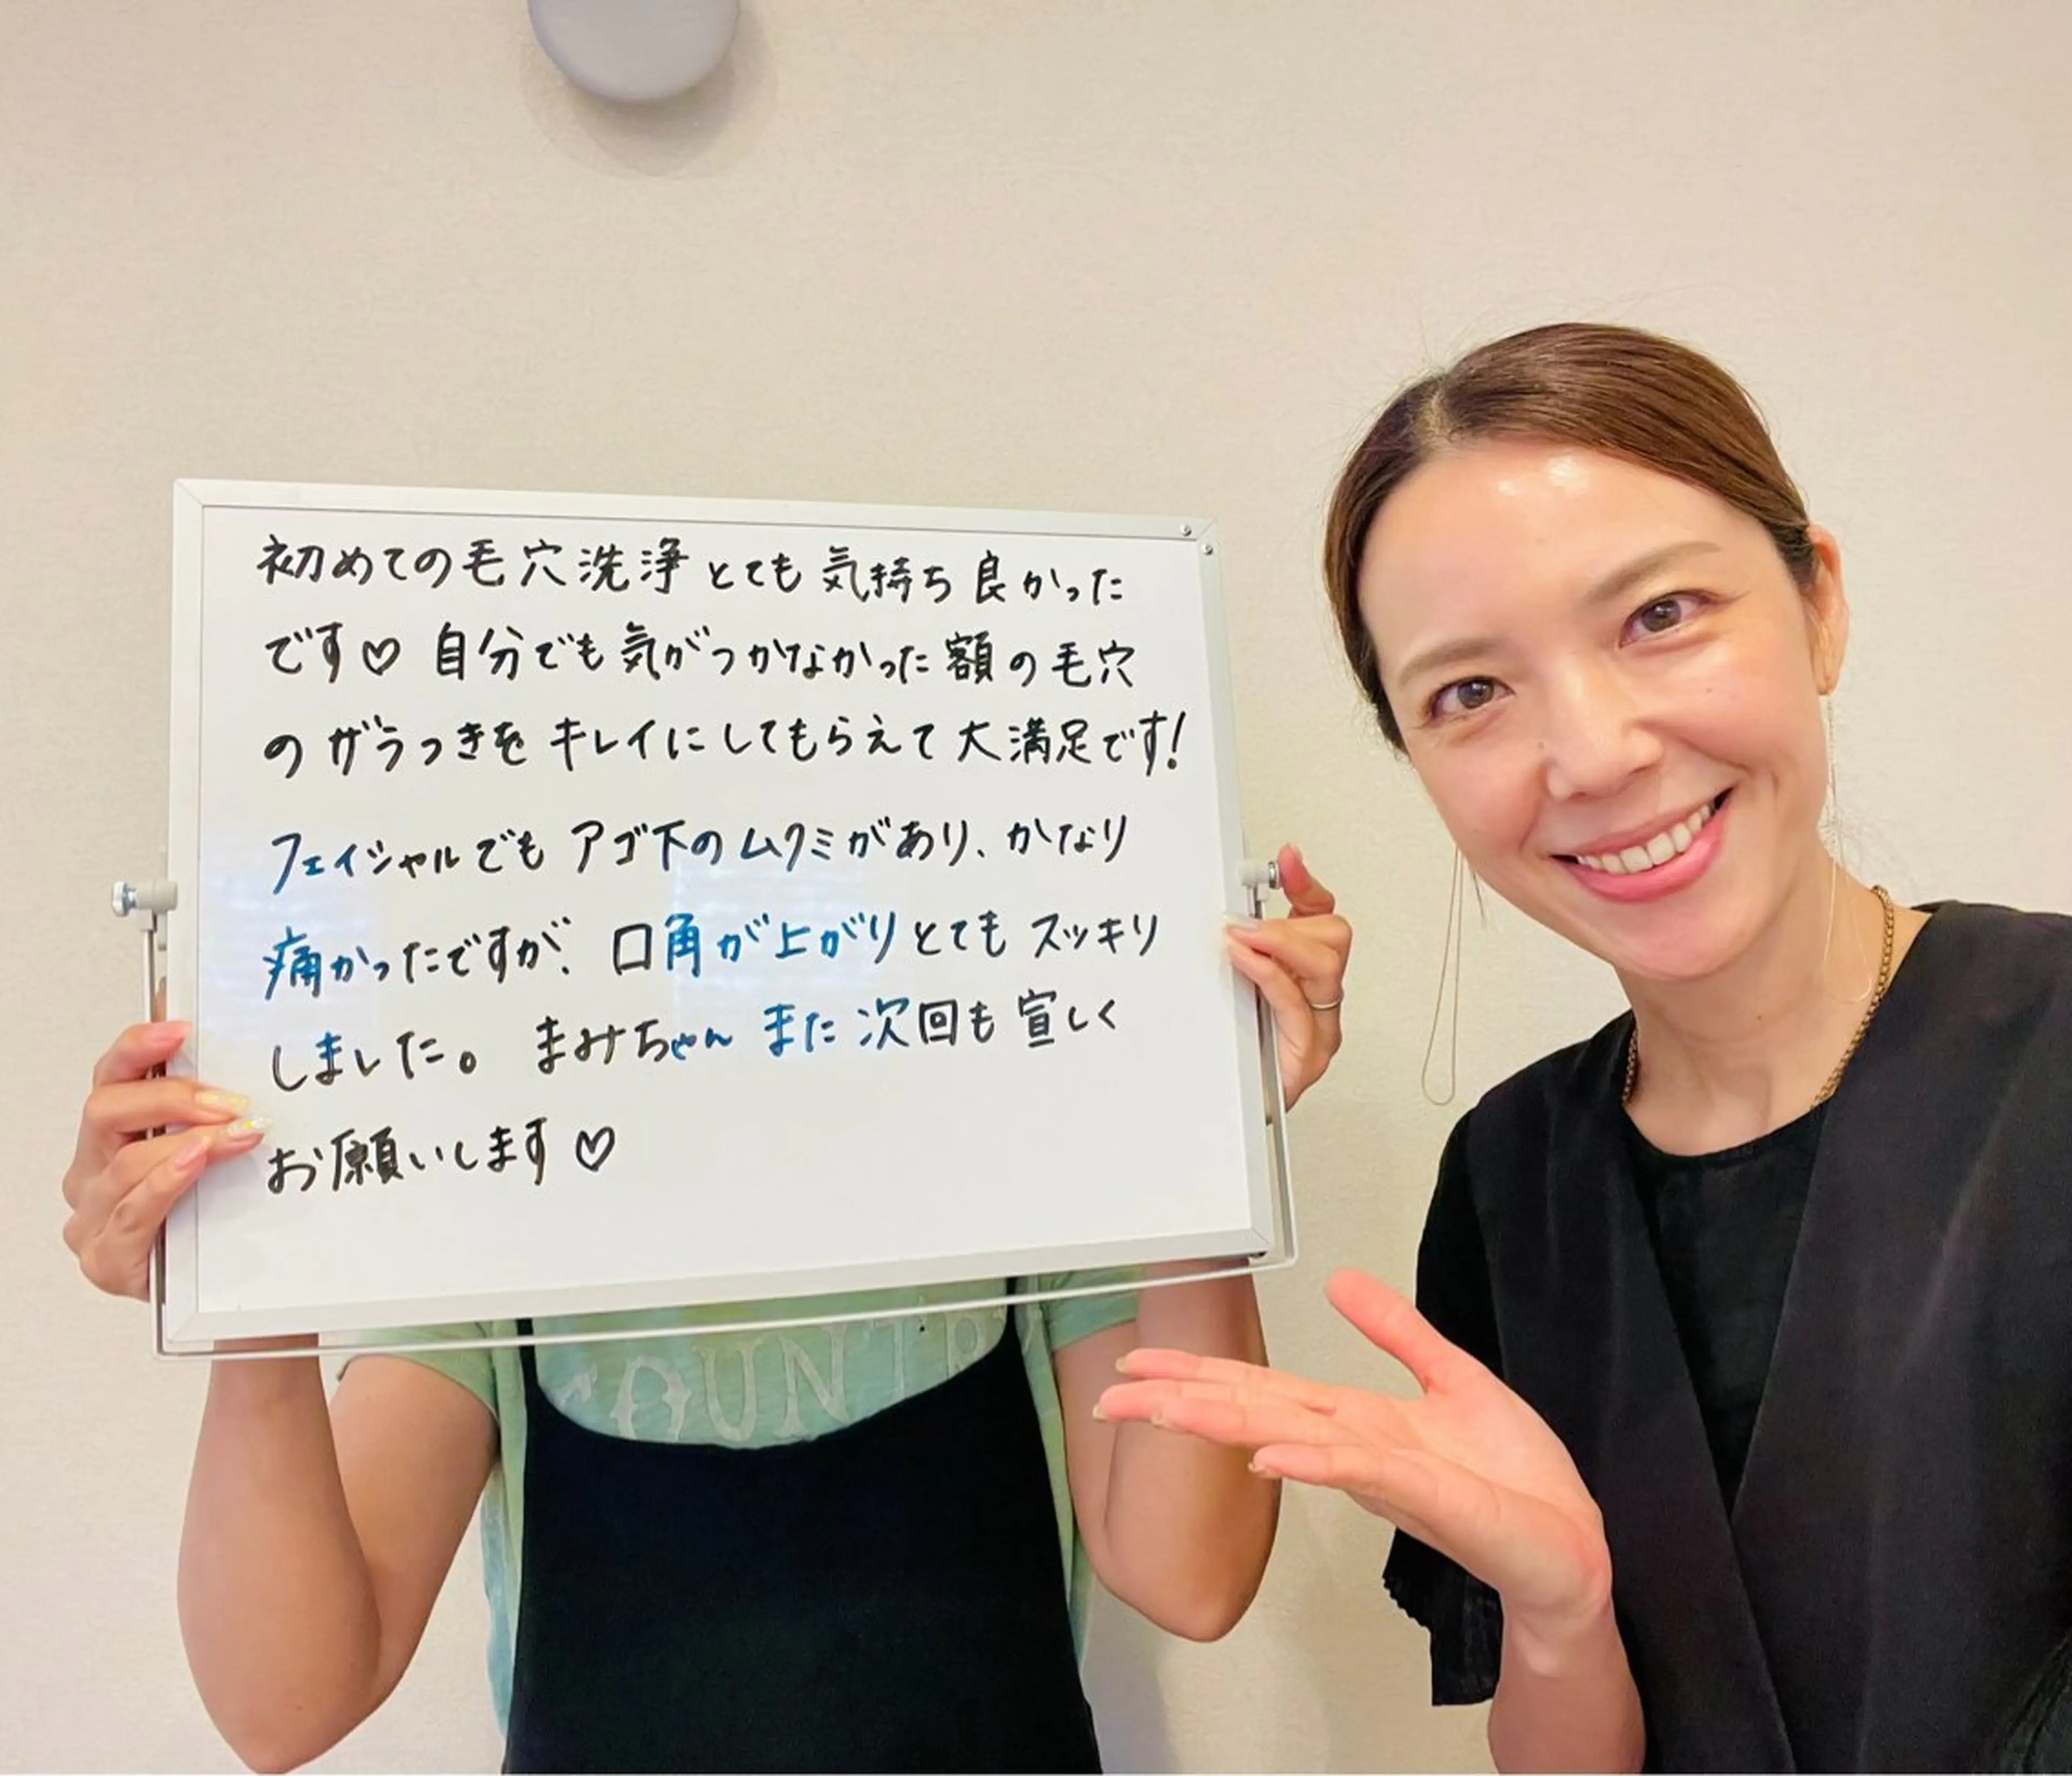 初めての毛穴洗浄とても気持ち良かった
です♡ 自分でも気がつかなかった額の毛穴
のザラつきをキレイにしてもらえて大満足です!
フェイシャルでもアゴ下のムクミがあり、かなり
痛かったですが、口角が上がりとてもスッキリ
しました。 まみちゃんまた次回も宜しく
お願いします♡
COUNTR